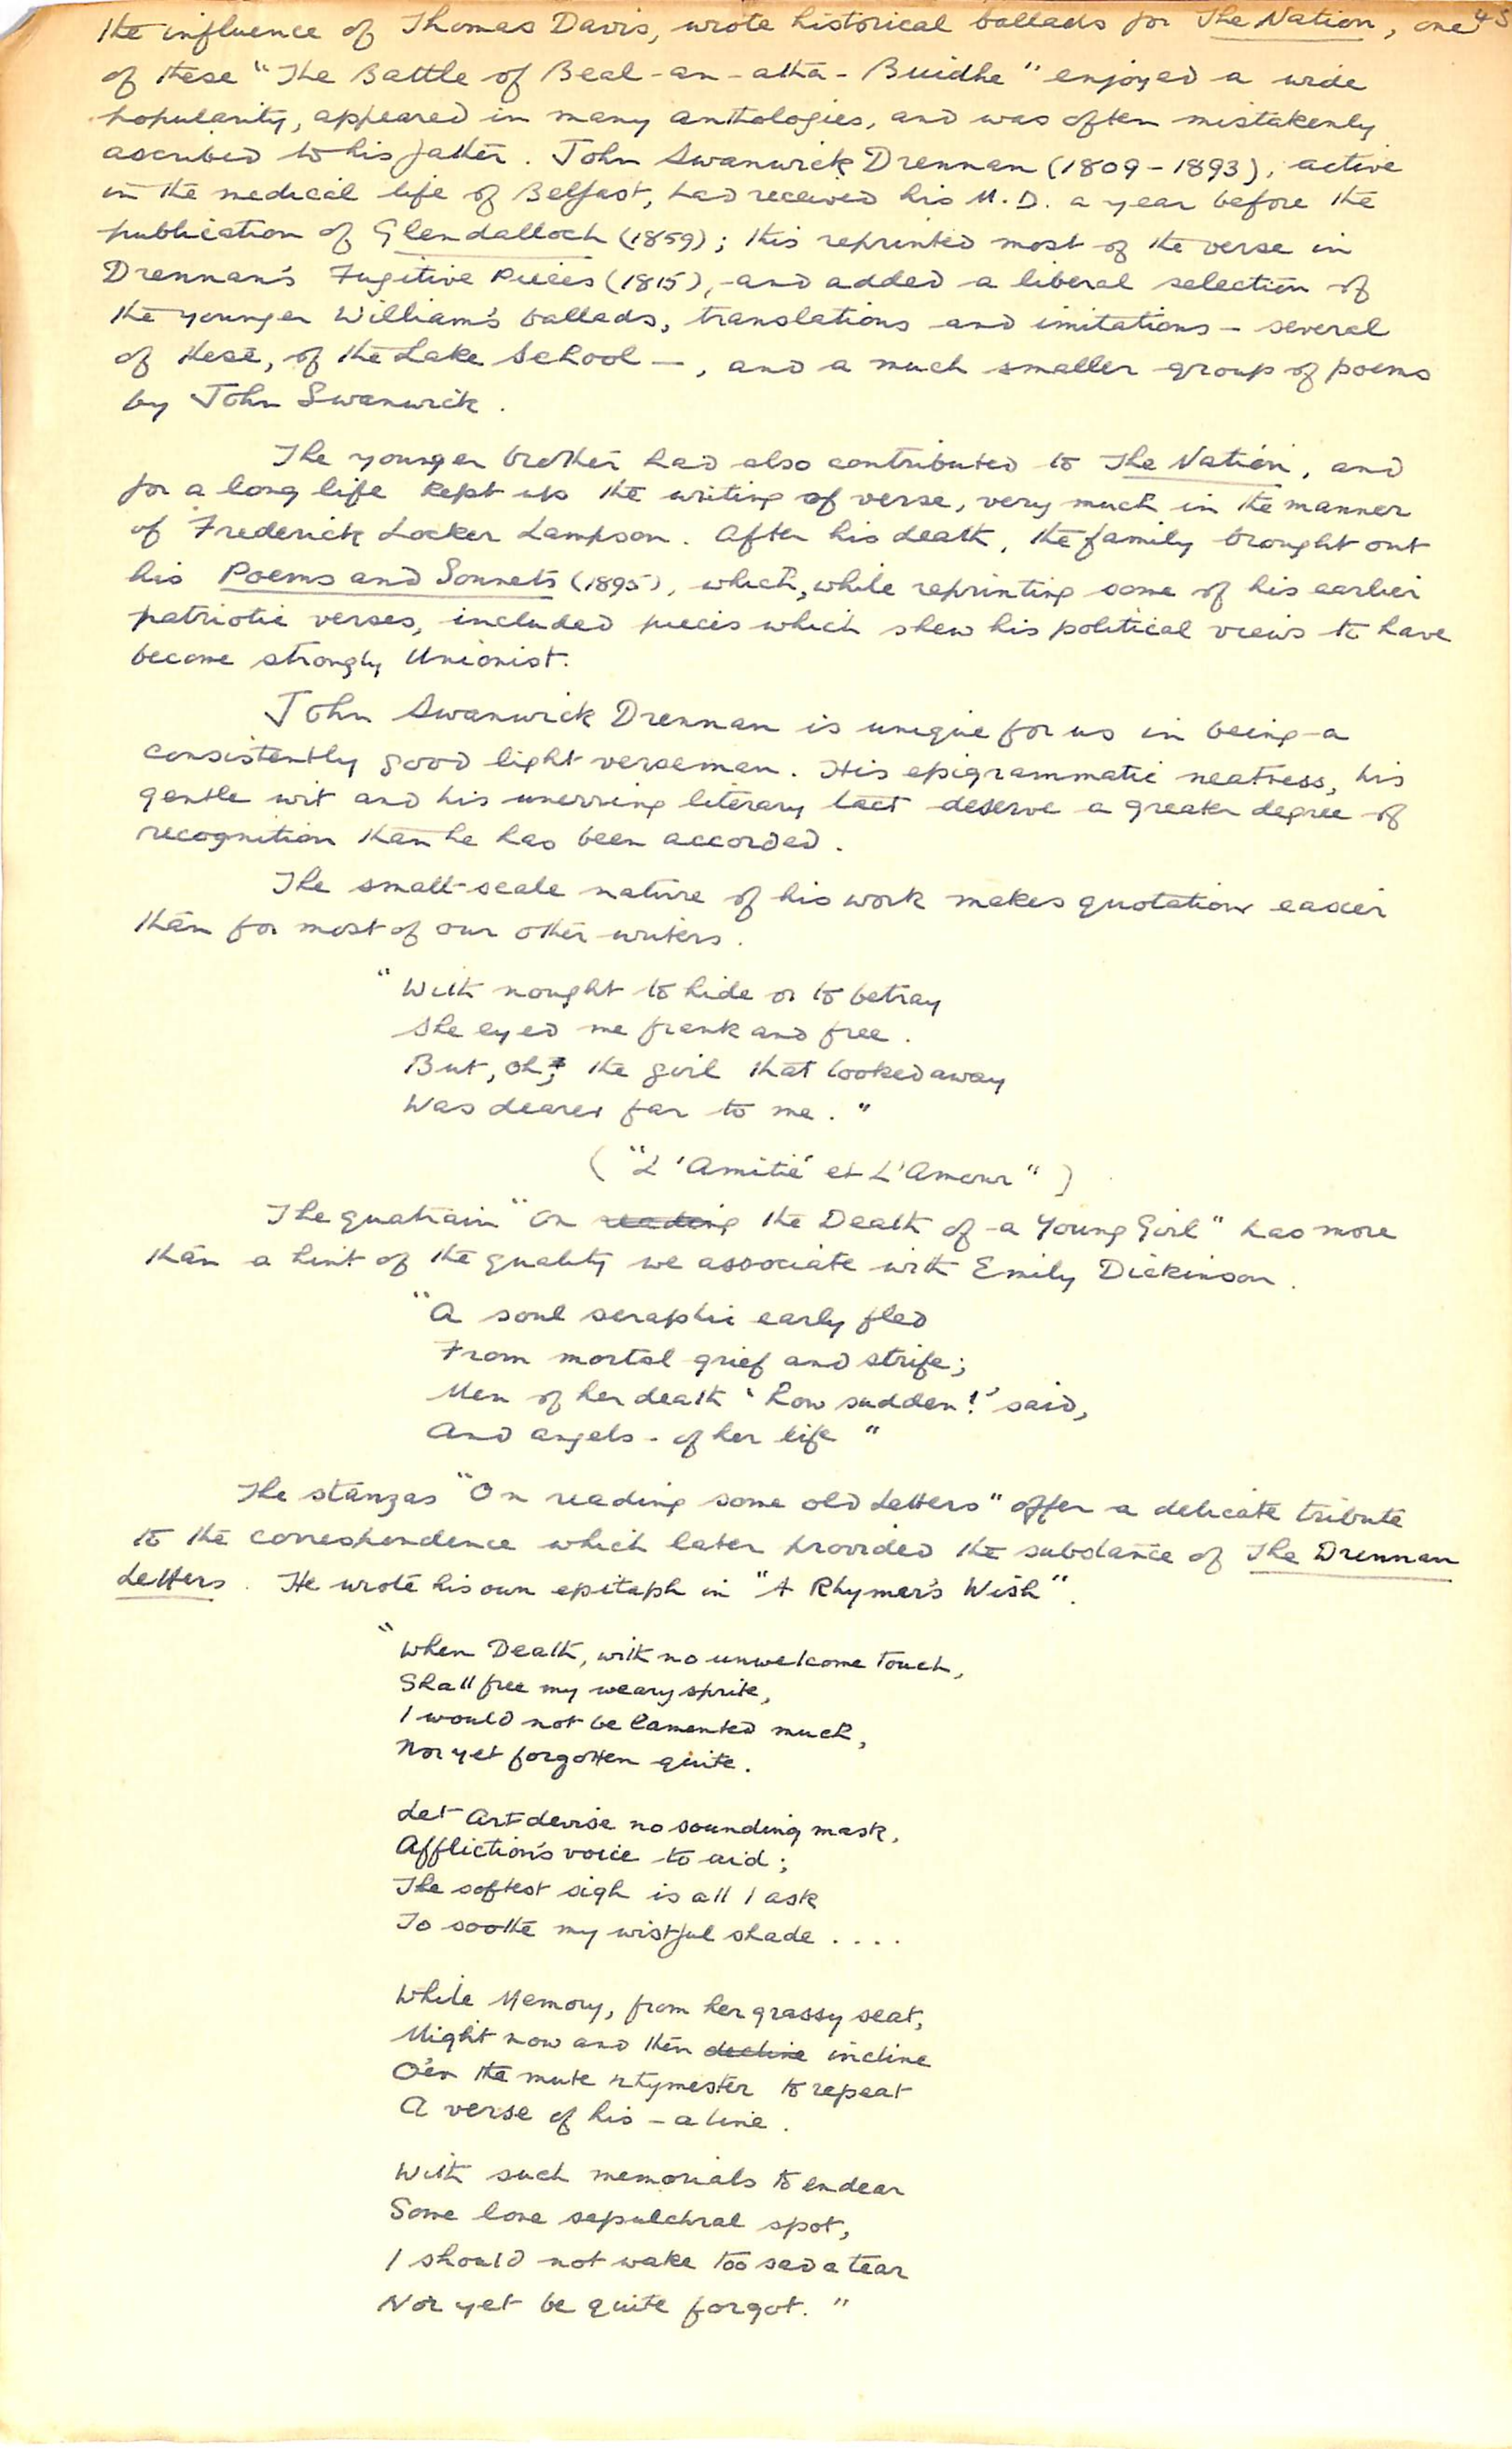 the influence of Thomas Davis, wrote historical ballads for The Nation, one 45
of these "The Battle of Beal-an-atha-Buidhe" enjoyed a wide
popularity, appeared in many anthologies, and was often mistakenly
ascribed to his father. John Swanwick Drennan (1809-1893), active
in the medical life of Belfast, had received his M.D. a year before the
publication of Glendalloch (1859); this reprinted most of the verse in
Drennan's Fugitive Pieces (1815), and added a liberal selection of
the younger William's ballads, translations and imitations - several
of these, of the Lake School -, and a much smaller group of poems
by John Swanwick.
The younger brother had also contributed to The Nation, and
for a long life kept up the writing of verse, very much in the manner
of Frederick Locker Lampson. After his death, the family brought out
his Poems and Sonnets (1895), which, while reprinting some of his earlier
patriotic verses, included pieces which shew his political views to have
become strongly Unionist.
John Swanwick Drennan is unique for us in being a
consistently good light verseman. His epigrammatic neatness, his
gentle wit and his unerring literary tact deserve a greater degree of
recognition than he has been accorded.
The small-scale nature of his work makes quotation easier
than for most of our other writers.
"With nought to hide or to betray
She eyed me frank and free.
But, oh, the girl that looked away
Was dearer far to me."
("L'Amitié et L'Amour")
The quatrain "On reading the Death of a Young Girl" has more
than a hint of the quality we associate with Emily Dickinson.
"A soul seraphic early fled
From mortal grief and strife;
Men of her death 'How sudden!' said,
And angels - of her life"
The stanzas "On reading some old Letters" offer a delicate tribute
to the correspondence which later provided the substance of The Drennan
Letters. He wrote his own epitaph in "A Rhymer's Wish".
"When Death, with no unwelcome touch,
Shall free my weary sprite,
I would not be lamented much,
Nor yet forgotten quite.
Let Art devise no sounding mask,
Affliction's voice to aid;
The softest sigh is all I ask
To soothe my wistful shade ....
While Memory, from her grassy seat,
Might now and then decline incline
O'er the mute rhymester to repeat
A verse of his - a line.
With such memorials to endear
Some lone sepulchral spot,
I should not wake too sad a tear
Nor yet be quite forgot."